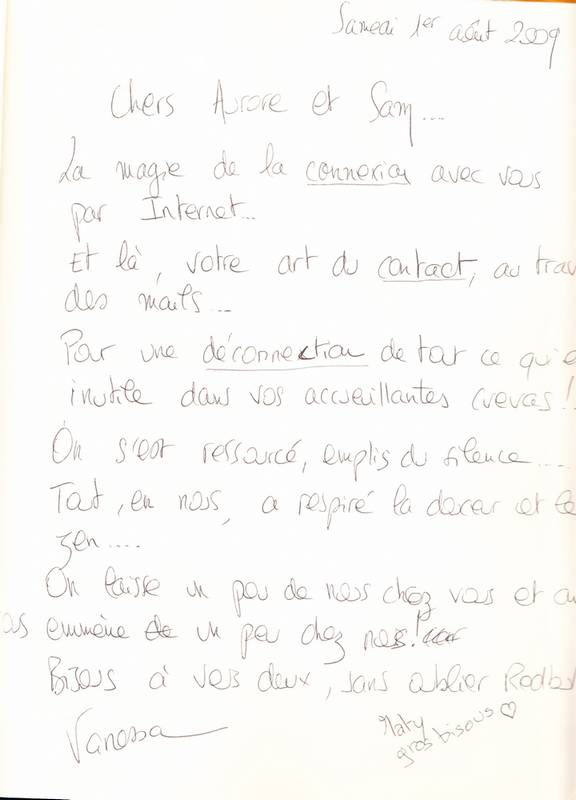 Samedi 1er août 2009
Chers Aurore et Sam...
La magie de la connexion avec vous
par Internet...
Et là, votre art du contact, au trav
des mails...
Pour une déconnection de tout ce qui e
inutile dans vos accueillantes cuevas!
On s'est ressourcé, emplis du silence....
Tout, en nous, a respiré la douceur et le
zen....
On laisse un peu de nous chez vous et on
ous emmène de un peu chez nous!
Bisous à vous deux, sans oublier
Vanessa
Maty
gros bisous ♡